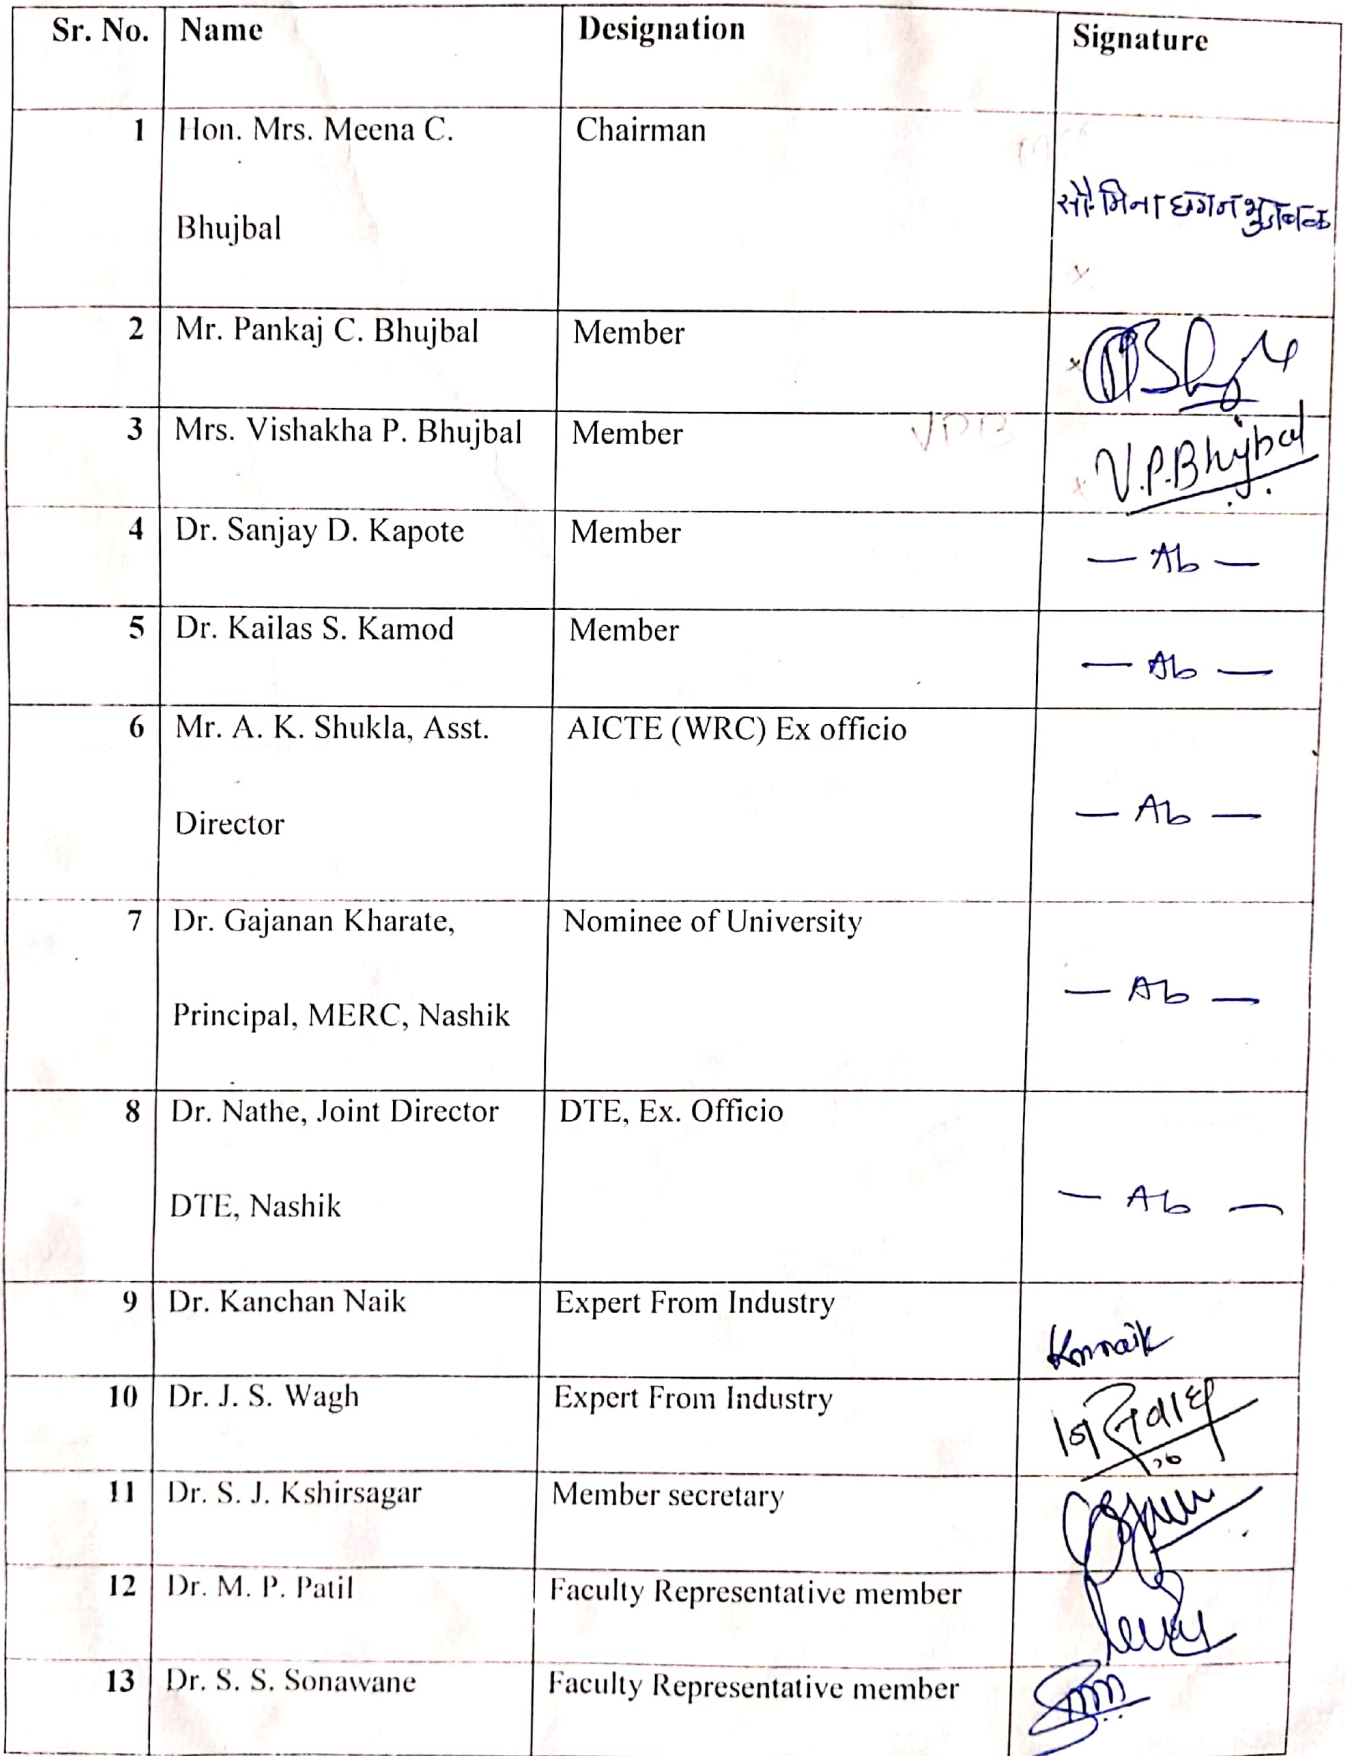 Sr. No. Name Designation Signature
1 Hon. Mrs. Meena C. Chairman
सौ. मिना छगन भुजबळ
Bhujbal
2 Mr. Pankaj C. Bhujbal Member
3 Mrs. Vishakha P. Bhujbal Member V.P.Bhujbal
4 Dr. Sanjay D. Kapote Member — Ab —
5 Dr. Kailas S. Kamod Member — Ab —
6 Mr. A. K. Shukla, Asst. AICTE (WRC) Ex officio
Director — Ab —
7 Dr. Gajanan Kharate, Nominee of University
— Ab —
Principal, MERC, Nashik
8 Dr. Nathe, Joint Director DTE, Ex. Officio
DTE, Nashik — Ab —
9 Dr. Kanchan Naik Expert From Industry
10 Dr. J. S. Wagh Expert From Industry
11 Dr. S. J. Kshirsagar Member secretary
12 Dr. M. P. Patil Faculty Representative member
13 Dr. S. S. Sonawane Faculty Representative member